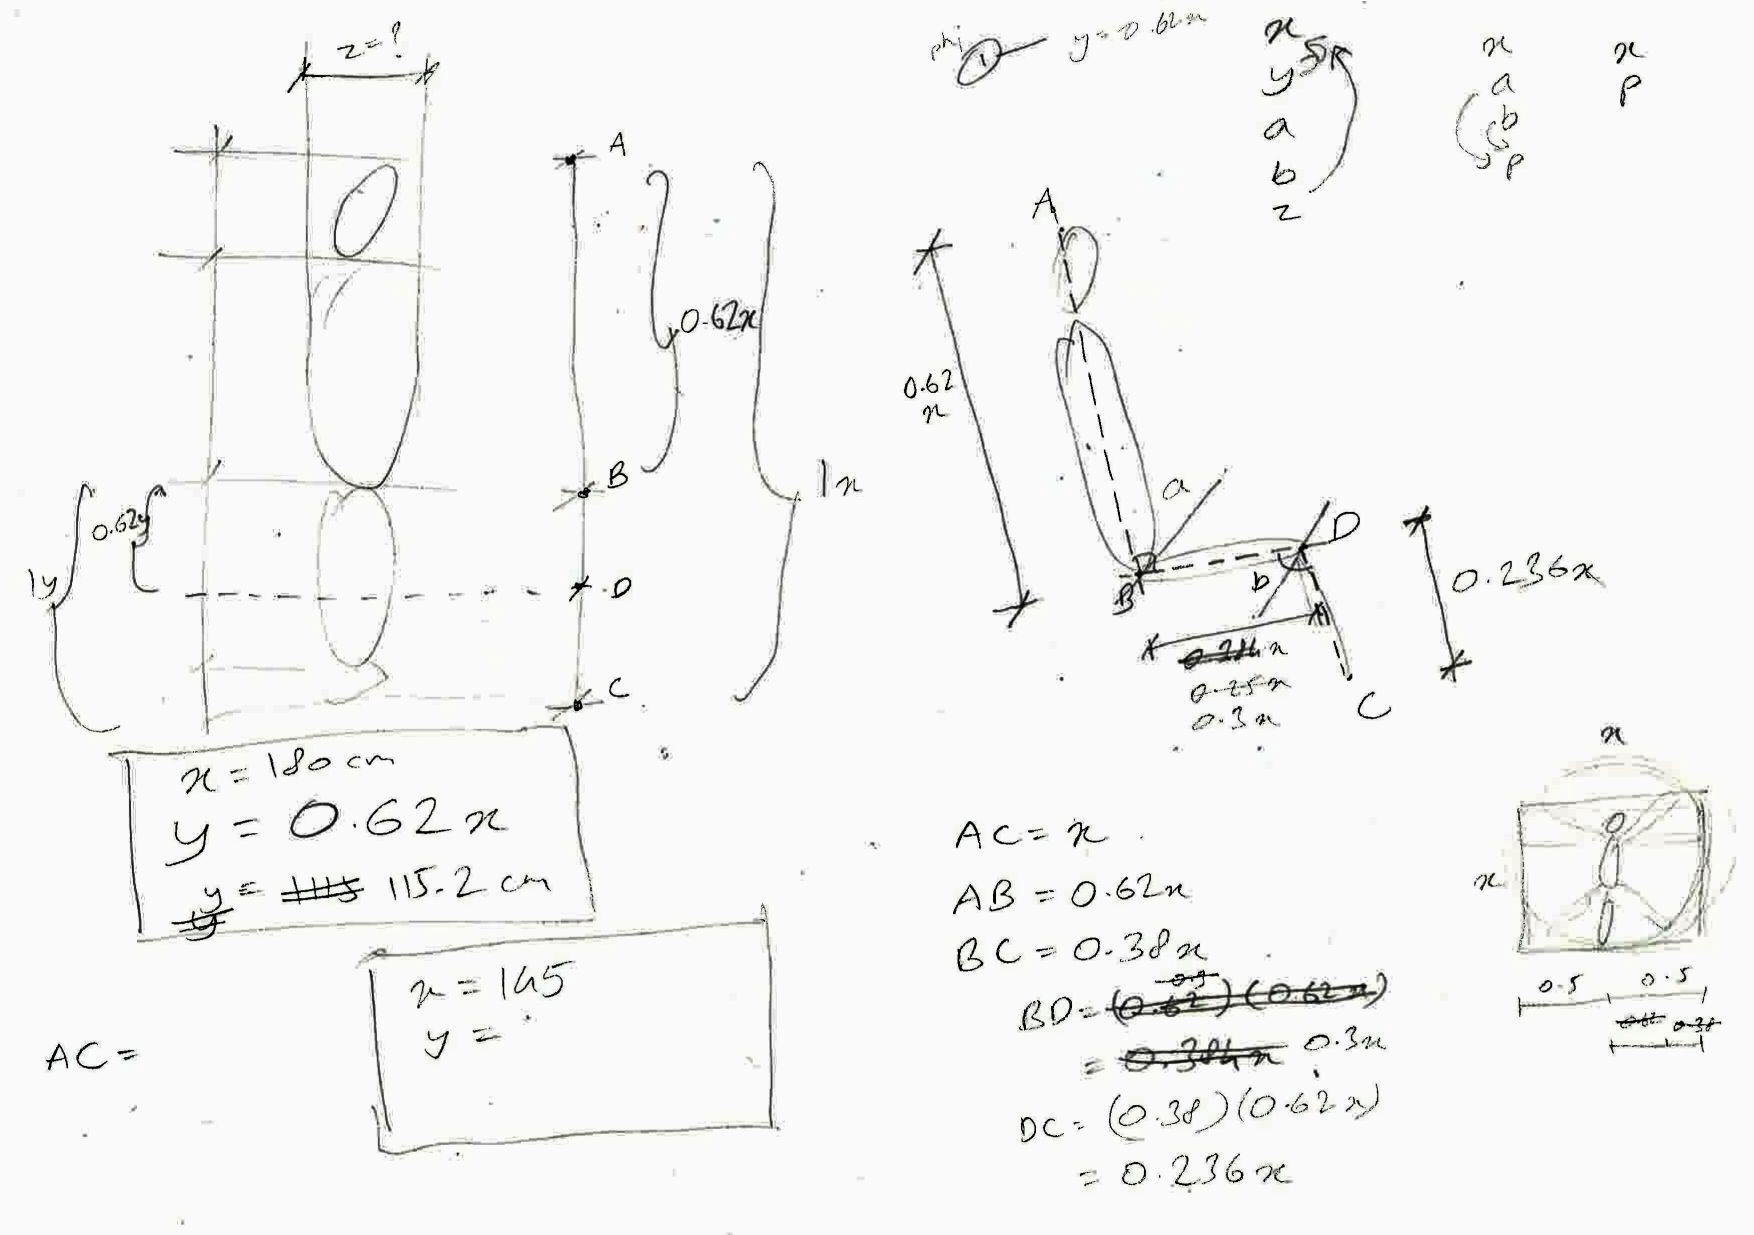 z=?
A
0.62x
B
1x
0.62y
1y
D
C
x = 180 cm
y = 0.62x
y = 115.2 cm
y
x = 145
y =
AC =
phi
1
y = 0.62x
x
y
a
b
z
x
a
b
p
x
p
A
0.62
x
a
B
D
b
0.236x
0.25x
0.3x
C
AC = x
AB = 0.62x
BC = 0.38x
BD = (0.62)(0.62x)
= 0.384x 0.3x
DC = (0.38)(0.62x)
= 0.236x
x
x
0.5 0.5
0.62 0.38